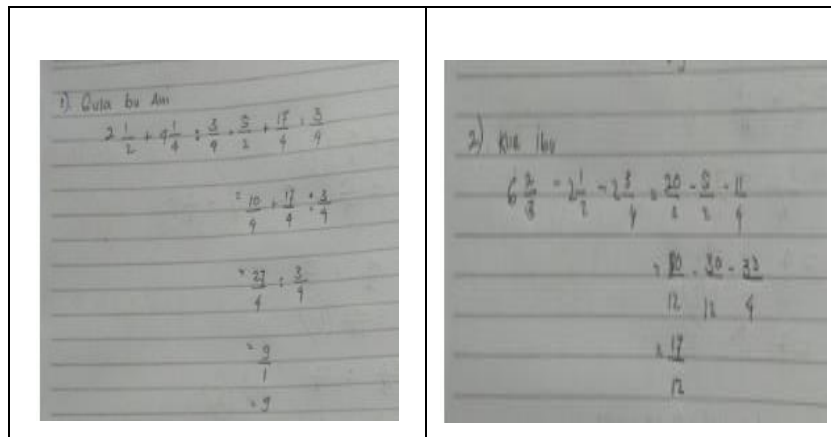 1) Gula bu Ani
2 1/2 + 4 1/4 : 3/4 = 5/2 + 17/4 : 3/4
= 10/4 + 17/4 : 3/4
= 27/4 : 3/4
= 9/1
= 9
2) Kue ibu
6 2/3 - 2 1/2 - 2 3/4 = 20/3 - 5/2 - 11/4
= 80/12 - 30/12 - 33/4
= 17/12